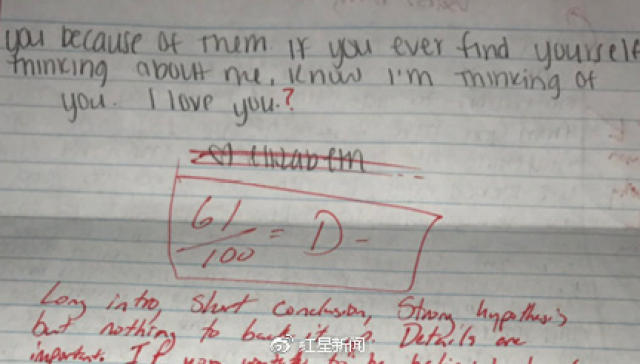 you because of them If you ever find yourself
thinking about me, know I'm thinking of
you. I love you.?
61
/100 = D-
Long intro, short conclusion, Strong hypothesis
but nothing to back it up. Details are
important. If you
红星新闻